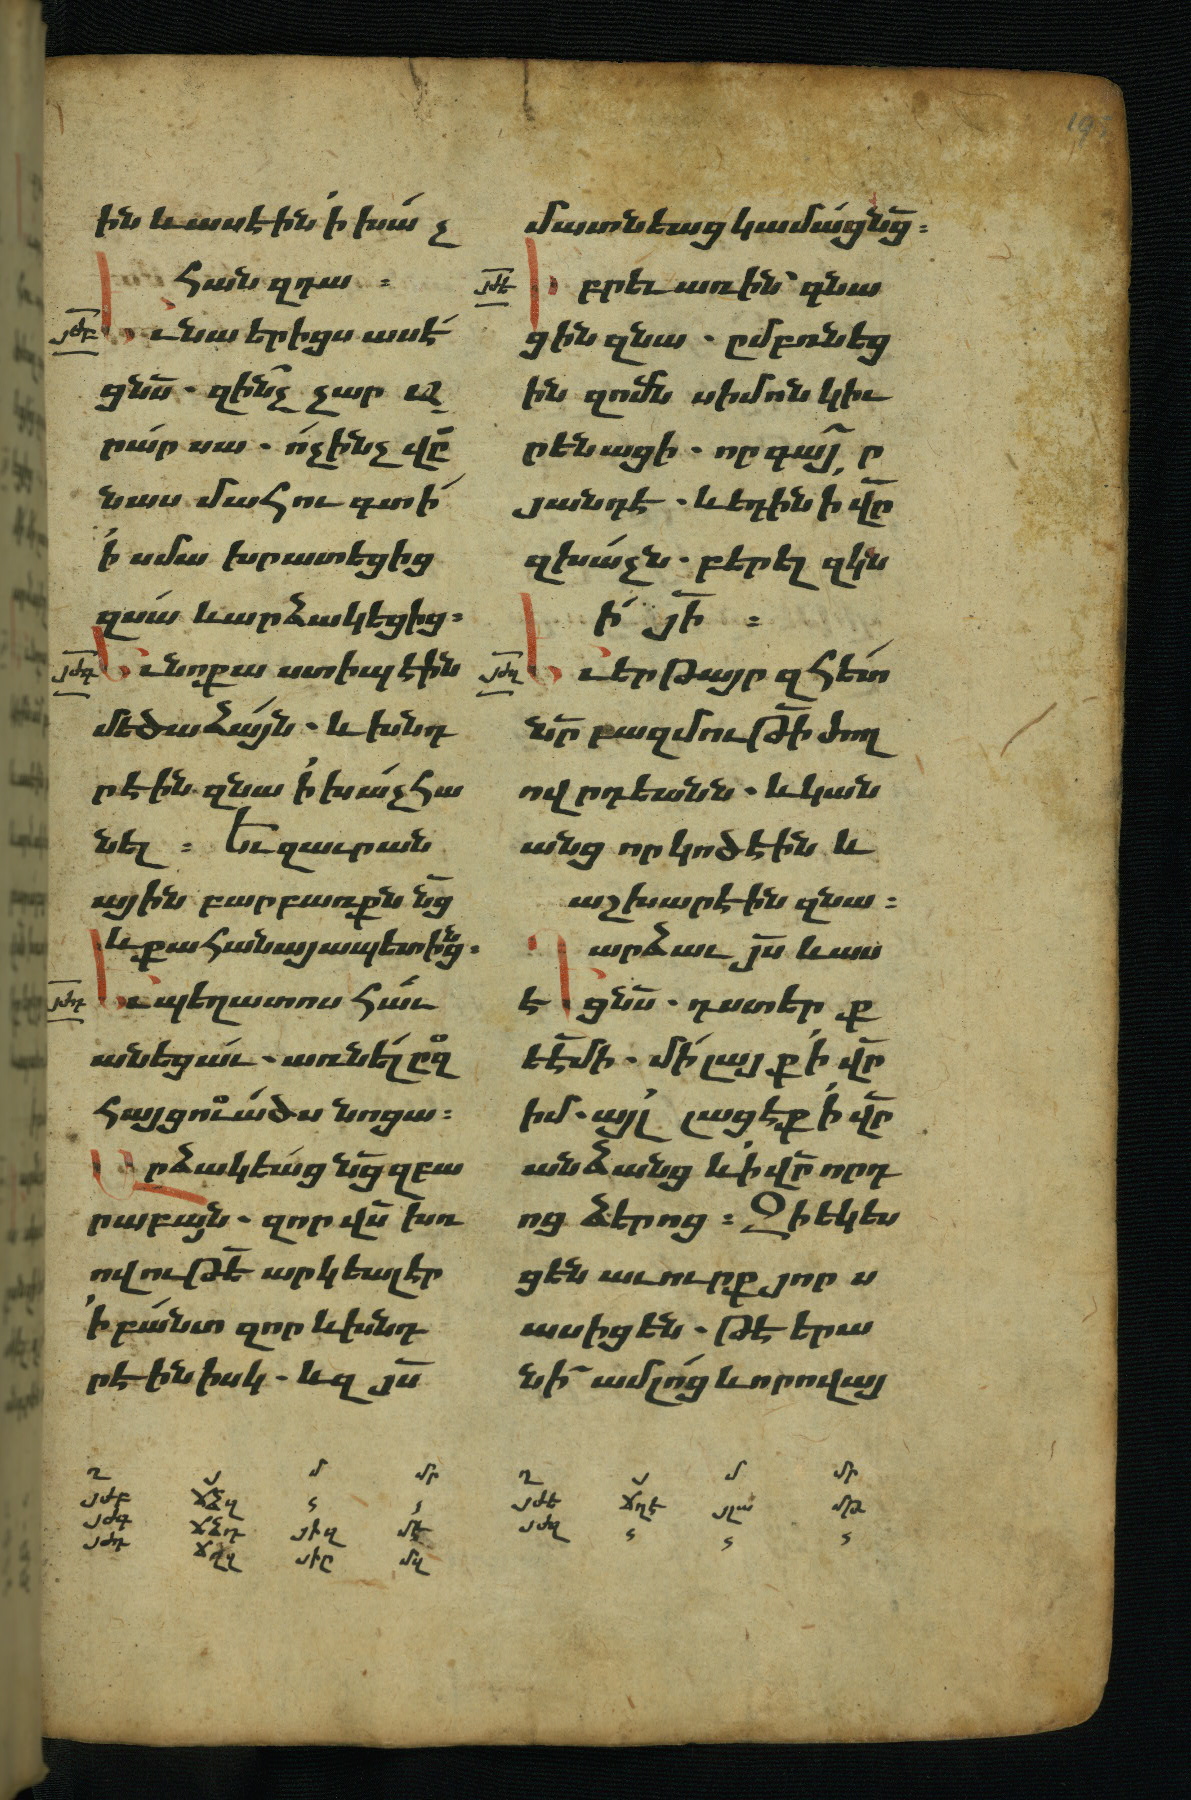 ին և ասէին ի խաչ
հան զդա ։
յժբ ւ նա երիցս ասէ
ցնս̄ . զինչ չար ա
րար սա . ոչինչ վր̄
նաս մահու գտի
ի սմա խրատեցից
զսա և արձակեցից ։
յժգ Եւ նոքա ստիպէին
մեծաձայն . և խնդ
րէին զնա ի խաչ հա
նել ։ Եւ զաւրան
ային բարբառքն նց̄
և քահանայապետիցն ։
յժդ Եւ պեղատոս հաւ
անեցաւ . առնել ըզ
հայցուածս նոցա ։
Արձակեաց նց̄ զբա
րաբայն . զոր վս̄ խռ
ովութե̄ արկեալ էր
ի բանտ զոր և խնդ
րէին իսկ . և զյս̄
մատնեաց կամացնց̄ ։
յժե բրեւ առին գնա
ցին զնա . ըմբռնեց
ին զոմն սիմոն կիւ
րենացի . որ գայր
յանդէ . և եդին ի վր̄
զխաչն . բերել զկն
ի յի̄ ։
յժզ Եւ երթայր զհետ
նր̄ բազմութի̄ ժող
ովրդեանն . և կան
անց որ կոծէին և
աշխարէին զնա ։
Դարձաւ յս̄ և աս
է ցնս̄ . դստերք
եէ̄մի . մի լայք ի վր̄
իմ . այլ լացէք ի վր̄
անձանց և ի վր̄ որդ
ոց ձերոց ։ Զի եկես
ցեն աւուրք յորս
ասիցեն . թէ երա
նի ամլոց և որովայ
ղ յ մ մր
յժբ ճձզ
յժգ ճձդ յիզ մէ
յժդ ճղզ յիը մզ
ղ յ մ մր
յժե ճղէ յլա մթ
յժզ